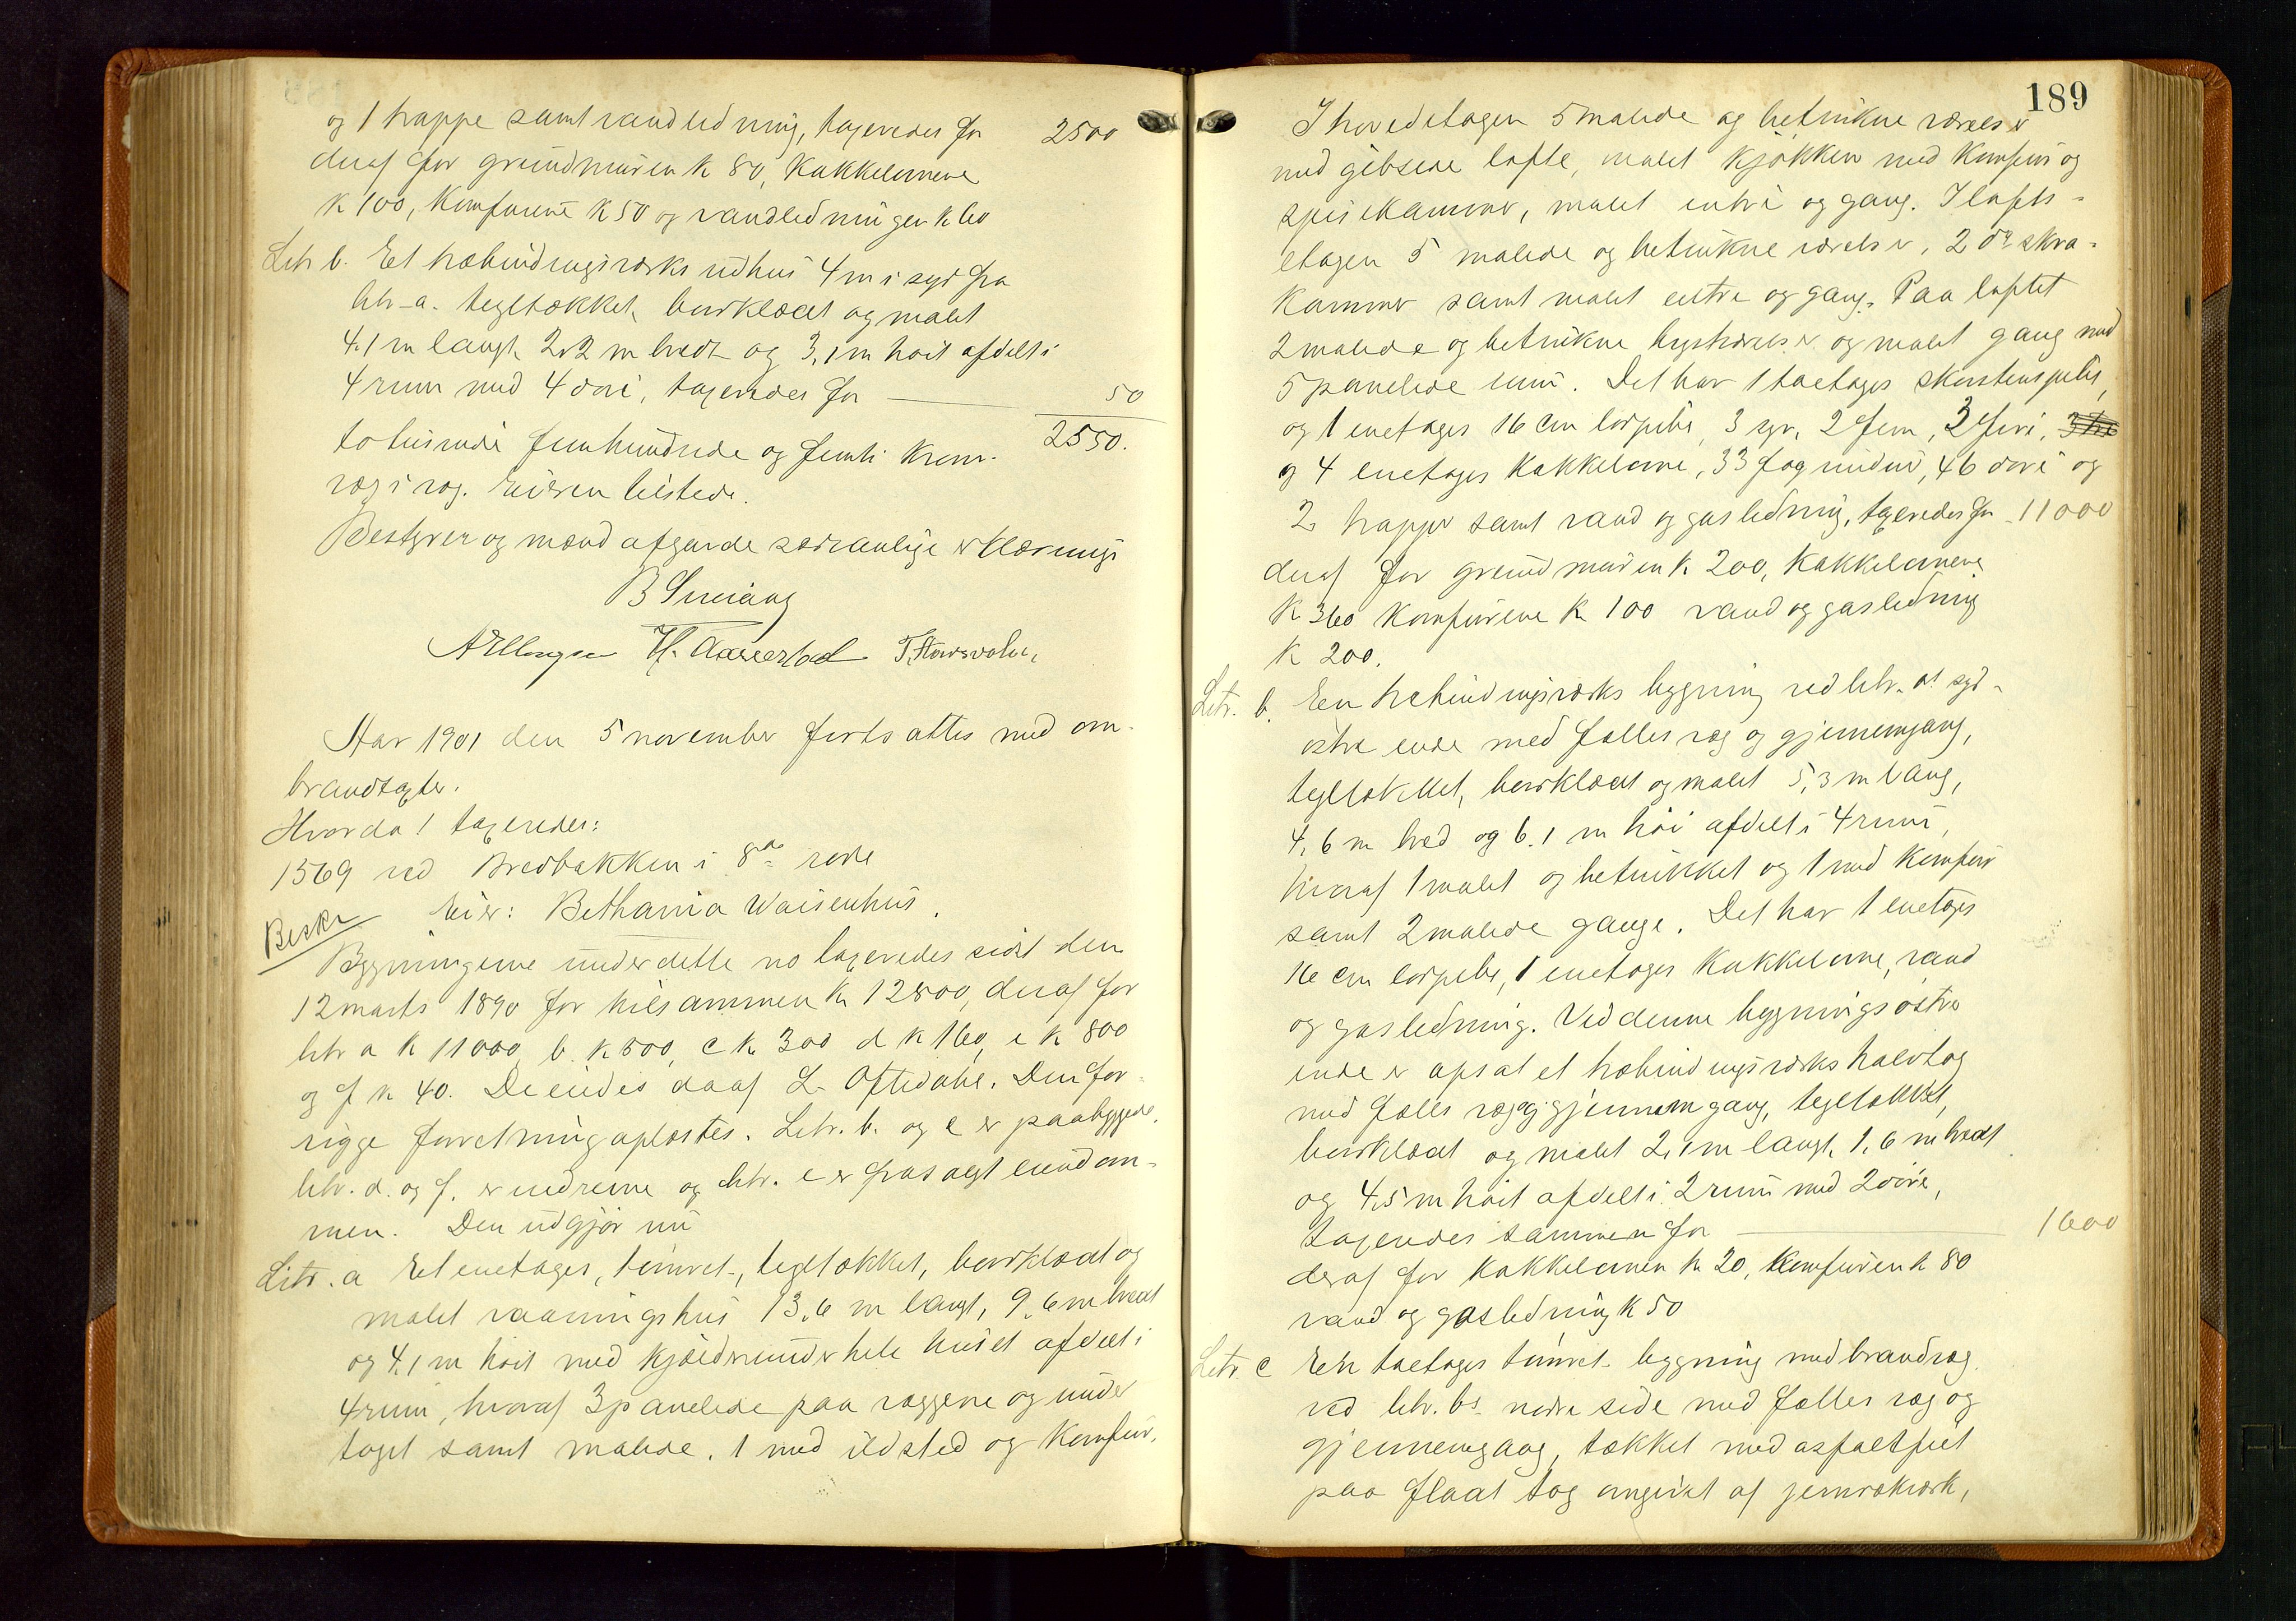 og 1 trappe samt vandledning, taxeredes for 2500
deraf for grundmuren k 80, Kakkelovnene
k 100, Komfurene k 50 og vandledningen k 60
Litr b. Et træbindingsværks udhus 4 m i syd fra
litr a. tegltækket, bordklædt og malet
4.1 m langt, 2.2 m bredt og 3,1 m høit afdelt i
4 rum med 4 døre, taxeredes for 50
totusinde femhundrede og femti kroner. 2550.
væg i væg. Eieren tilstede.
Bestyrer og mænd afgavde sædvanlige erklæringer

Aar 1901 den 5 november fortsattes med om-
brandtaxter.
Hvorda! taxeredes:
1569 ved Bredbakken i 8de rode
Beskr Eier: Bethania Waisenhus.
Bygningerne under dette no taxeredes sidst den
12 marts 1890 for tilsammen k 12800, deraf for
litr a k 11000, b. k 500, c k 300 d k 160, e k 800
og f k 40. De eiedes da af L. Oftedahl. Den for-
rige forretning oplæstes. Litr. b. og c er paabyggede,
litr. d. og f. er nedrevne og litr. e er frasolgt eiendom-
men. Den udgjør nu
Litr. a Et enetages, tømret, tegltækket, bordklædt og
malet vaaningshus 13.6 m langt, 9.6 m bredt
og 4,1 m høit med kjælder under hele huset afdelt i
4 rum, hvoraf 3 panelede paa væggene og under
taget samt malede, 1 med ildsted og Komfur.

189
I hovedetagen 5 malede og betrukne værelser
med gibsede lofte, malet kjøkken med Komfur og
spisekammer, malet entre og gang. I lofts-
etagen 5 malede og betrukne værelser, 2 do skra-
kammer samt malet entre og gang. Paa loftet
2 malede og betrukne kvistværelser og malet gang med
5 panelede rum. Det har 1 toetages skorstenspibe,
og 1 enetages 16 cm lodpibe, 3 syv, 2 fem, 3 fire,
og 4 enetages Kakkelovne, 33 fag vinduer, 46 døre og
2 trapper samt vand og gasledning, taxeredes for 11000
deraf for grundmuren k. 200, Kakkelovnene
k 360 Komfurene k 100 vand og gasledning
k 200.
Litr. b. Een træbindingsværks bygning ved litr. as syd-
østre ende med fælles væg og gjennemgang,
tegltækket, bordklædt og malet 5,3 m lang,
4,6 m bred og 6.1 m høi afdelt i 4 rum,
hvoraf 1 malet og betrukket og 1 med Komfur
samt 2 malede gange. Det har 1 enetages
16 cm lodpibe, 1 enetages Kakkelovne, vand
og gasledning. Ved denne bygnings østre
ende er opsat et træbindingsværks halvtag
med fælles væg og gjennemgang, tegltækket,
bordklædt og malet 2,1 m langt, 1,6 m bredt
og 4,5 m høit afdelt i 2 rum med 2 døre,
taxeredes sammen for 1600
deraf for Kakkelovnen k 20, Komfuren k 80
vand og gasledning k 50
Litr. c Een toetages tømret bygning med brandvæg
ved litr. bs nedre side med fælles væg og
gjennemgang, tækket med asfaltfilt
paa fladt tag omgivet af